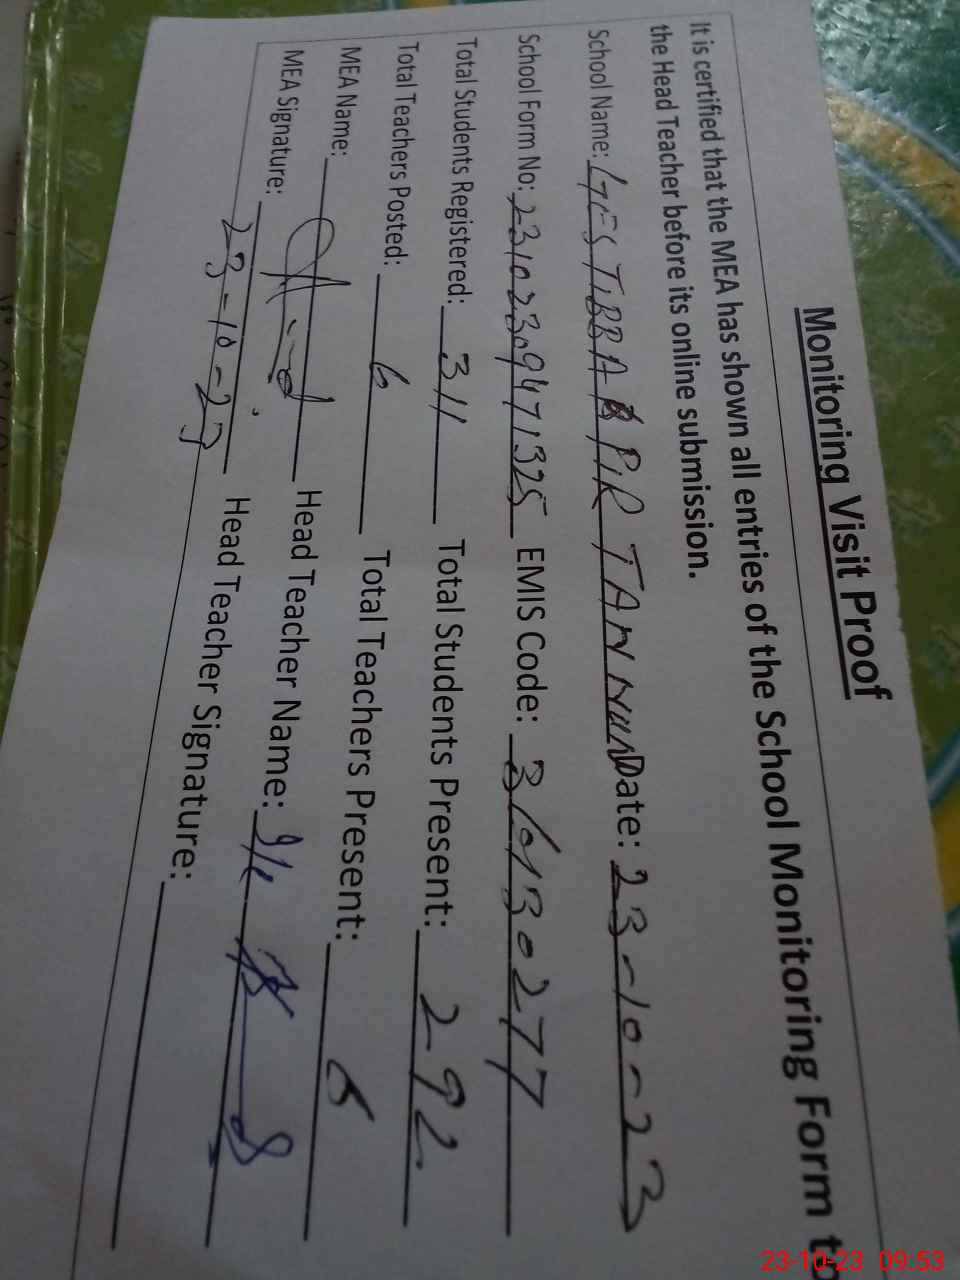 Monitoring Visit Proof
It is certified that the MEA has shown all entries of the School Monitoring Form to
the Head Teacher before its online submission.
School Name: GES TIBBA PIR TANNUN Date: 23-10-23
School Form No: 23102309471325 EMIS Code: 36130277
Total Students Registered: 311 Total Students Present: 292
Total Teachers Posted: 6 Total Teachers Present: 6
MEA Name: Head Teacher Name:
MEA Signature: 23-10-23 Head Teacher Signature:
23-10-23 09:53